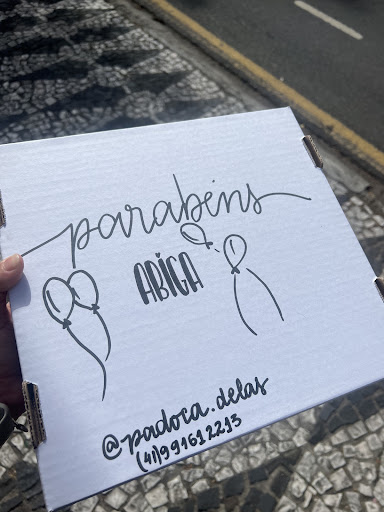 parabéns
ABIGA
@padoca.delas
(41)991612213